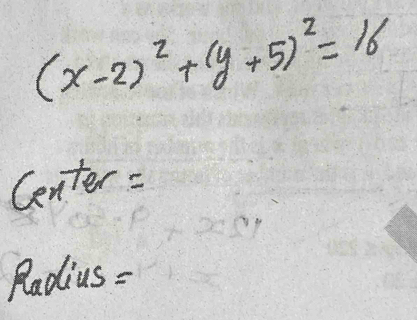 (x-2)² + (y+5)² = 16
Center =
Radius =